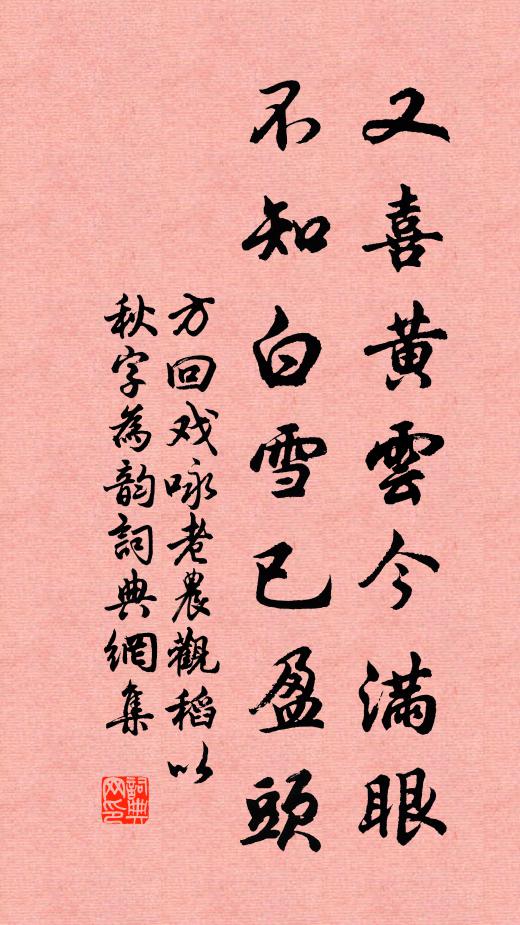 又喜黄雲今滿眼
不知白雪已盈頭
方回戏咏老農觀稻以
秋字為韵詞典網集
詞典网印